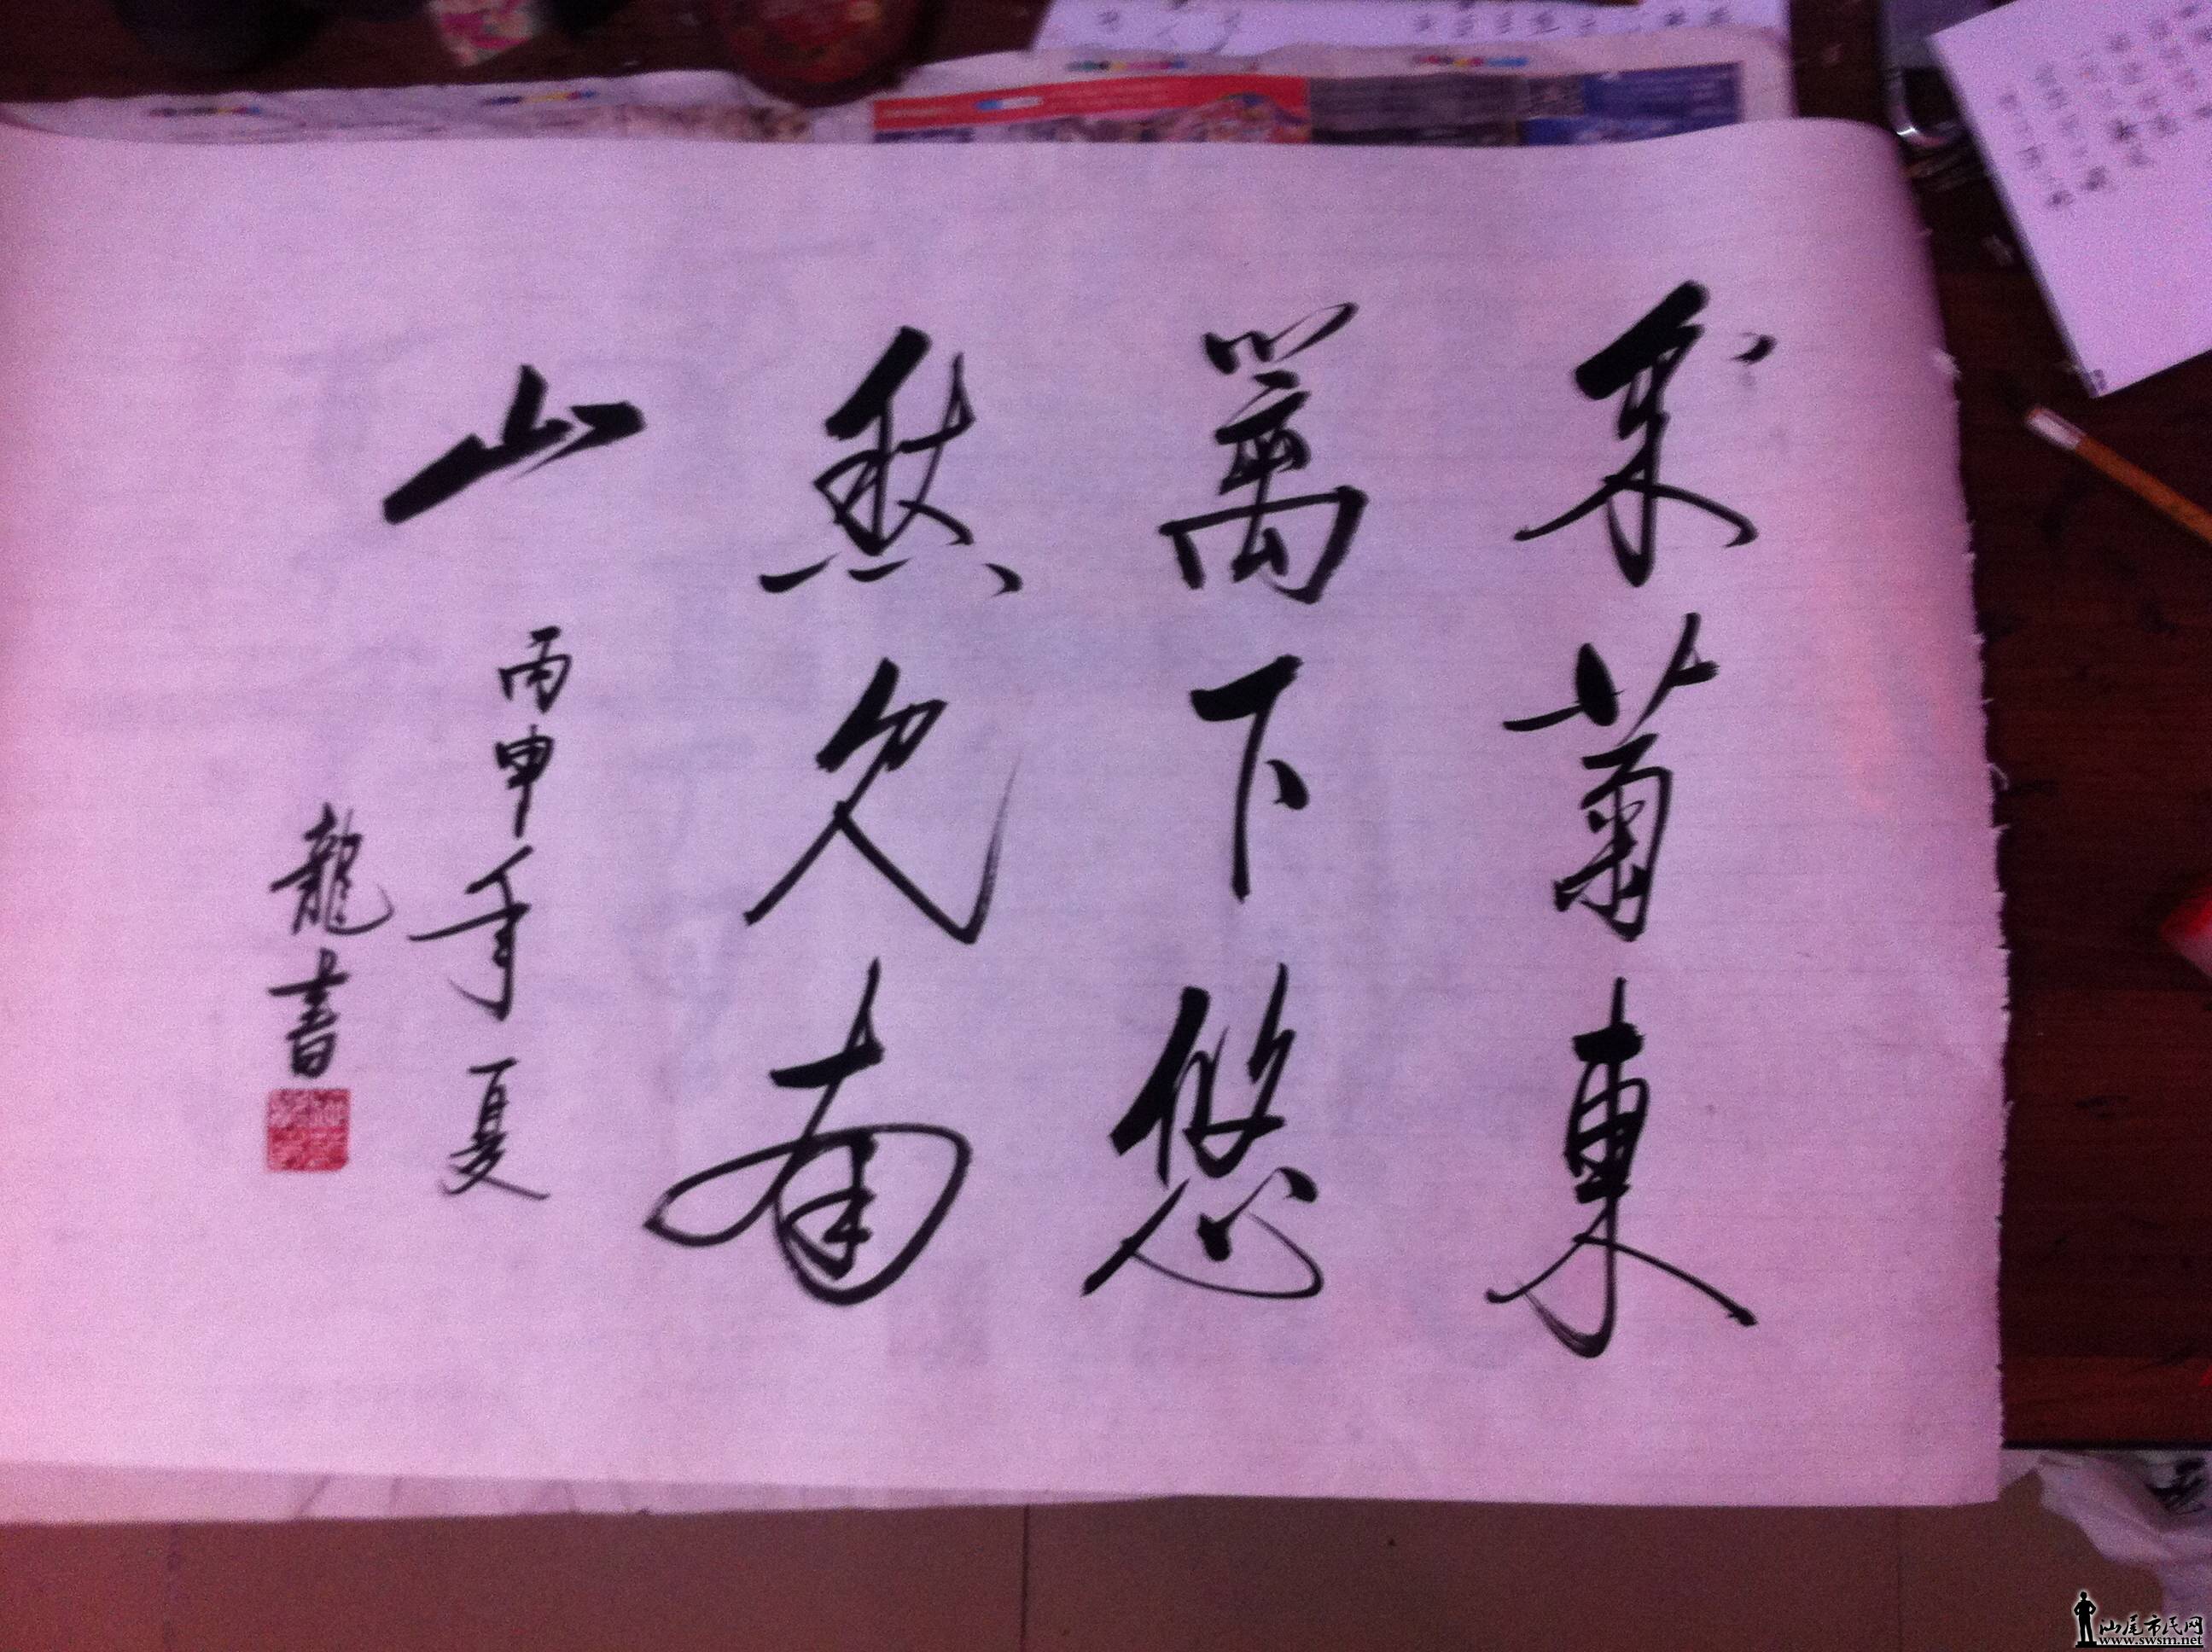 采菊東
篱下悠
然见南
山
丙申年夏
龍書
汕尾市民网
www.swsm.net